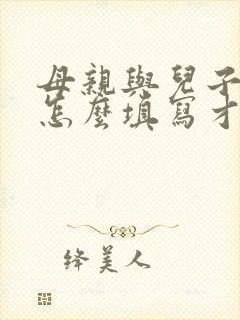 母親與兒子
怎麼填寫才
绛美人